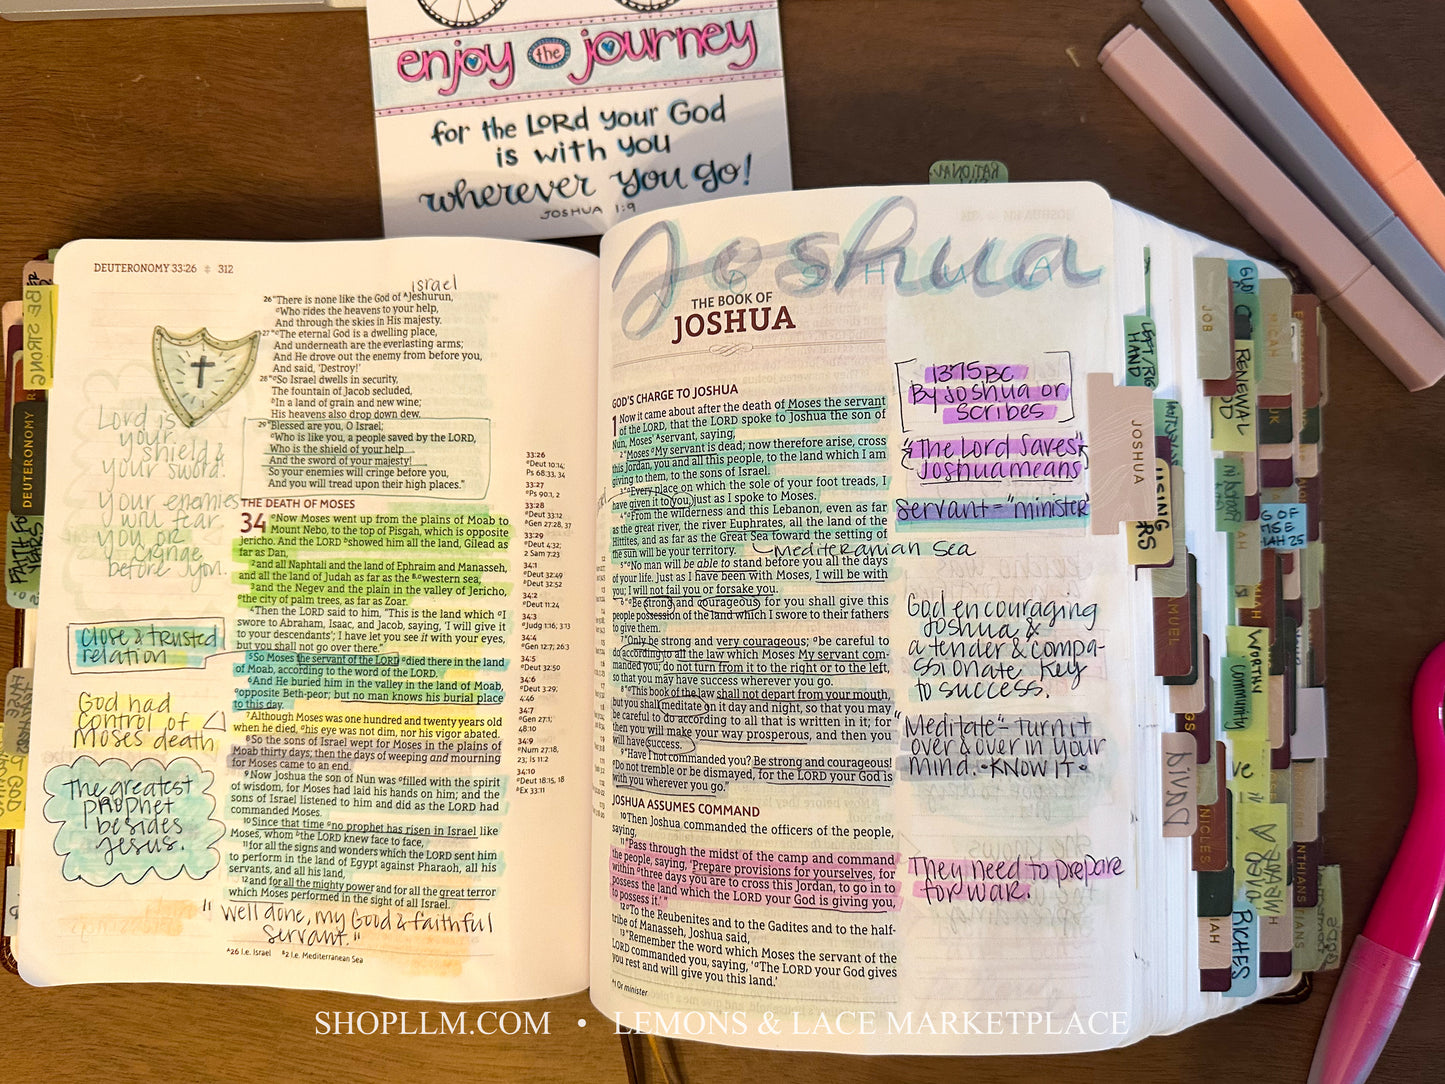 enjoy the journey
for the LORD your God
is with you
wherever you go!
JOSHUA 1:9
RATIONAL
DEUTERONOMY 33:26 ‡ 312
israel
26 "There is none like the God of AJeshurun,
Who rides the heavens to your help,
And through the skies in His majesty.
27 "The eternal God is a dwelling place,
And underneath are the everlasting arms;
And He drove out the enemy from before you,
And said, 'Destroy!'
28 "So Israel dwells in security,
The fountain of Jacob secluded,
In a land of grain and new wine;
His heavens also drop down dew.
29 "Blessed are you, O Israel;
Who is like you, a people saved by the LORD,
Who is the shield of your help
And the sword of your majesty!
So your enemies will cringe before you,
And you will tread upon their high places."
THE DEATH OF MOSES
34 Now Moses went up from the plains of Moab to
Mount Nebo, to the top of Pisgah, which is opposite
Jericho. And the LORD showed him all the land, Gilead as
far as Dan,
2 and all Naphtali and the land of Ephraim and Manasseh,
and all the land of Judah as far as the western sea,
3 and the Negev and the plain in the valley of Jericho,
the city of palm trees, as far as Zoar.
4 Then the LORD said to him, "This is the land which I
swore to Abraham, Isaac, and Jacob, saying, 'I will give it
to your descendants'; I have let you see it with your eyes,
but you shall not go over there."
5 So Moses the servant of the LORD died there in the land
of Moab, according to the word of the LORD.
6 And He buried him in the valley in the land of Moab,
opposite Beth-peor; but no man knows his burial place
to this day.
7 Although Moses was one hundred and twenty years old
when he died, his eye was not dim, nor his vigor abated.
8 So the sons of Israel wept for Moses in the plains of
Moab thirty days; then the days of weeping and mourning
for Moses came to an end.
9 Now Joshua the son of Nun was filled with the spirit
of wisdom, for Moses had laid his hands on him; and the
sons of Israel listened to him and did as the LORD had
commanded Moses.
10 Since that time no prophet has risen in Israel like
Moses, whom the LORD knew face to face,
11 for all the signs and wonders which the LORD sent him
to perform in the land of Egypt against Pharaoh, all his
servants, and all his land,
12 and for all the mighty power and for all the great terror
which Moses performed in the sight of all Israel.
"Well done, my Good & faithful
servant."
A26 I.e. Israel B2 I.e. Mediterranean Sea
33:26
Deut 10:14;
Ps 68:33, 34
33:27
Ps 90:1, 2
33:28
Deut 33:12
Gen 27:28, 37
33:29
Deut 4:32;
2 Sam 7:23
34:1
Deut 32:49
Deut 32:52
34:2
Deut 11:24
34:3
Judg 1:16; 3:13
34:4
Gen 12:7; 26:3
34:5
Deut 32:50
34:6
Deut 3:29;
4:46
34:7
Gen 27:1;
48:10
34:9
Num 27:18,
23; Is 11:2
34:10
Deut 18:15, 18
Ex 33:11
Lord is
your
shield &
your sword.
your enemies
will fear
you or
cringe
before you.
close & trusted
relation
God had
control of
Moses death
The greatest
prophet
besides
Jesus.
BE STRONG
DEUTERONOMY
Joshua
JOSHUA
THE BOOK OF
JOSHUA
GOD'S CHARGE TO JOSHUA
1 Now it came about after the death of Moses the servant
of the LORD, that the LORD spoke to Joshua the son of
Nun, Moses' servant, saying,
2 "Moses My servant is dead; now therefore arise, cross
this Jordan, you and all this people, to the land which I am
giving to them, to the sons of Israel.
3 "Every place on which the sole of your foot treads, I
have given it to you, just as I spoke to Moses.
4 "From the wilderness and this Lebanon, even as far
as the great river, the river Euphrates, all the land of the
Hittites, and as far as the Great Sea toward the setting of
the sun will be your territory.
Mediteranian sea
5 "No man will be able to stand before you all the days
of your life. Just as I have been with Moses, I will be with
you; I will not fail you or forsake you.
6 "Be strong and courageous, for you shall give this
people possession of the land which I swore to their fathers
to give them.
7 "Only be strong and very courageous; be careful to
do according to all the law which Moses My servant com-
manded you; do not turn from it to the right or to the left,
so that you may have success wherever you go.
8 "This book of the law shall not depart from your mouth,
but you shall meditate on it day and night, so that you may
be careful to do according to all that is written in it; for
then you will make your way prosperous, and then you
will have success.
9 "Have I not commanded you? Be strong and courageous!
Do not tremble or be dismayed, for the LORD your God is
with you wherever you go."
JOSHUA ASSUMES COMMAND
10 Then Joshua commanded the officers of the people,
saying,
11 "Pass through the midst of the camp and command
the people, saying, 'Prepare provisions for yourselves, for
within three days you are to cross this Jordan, to go in to
possess the land which the LORD your God is giving you,
to possess it.'"
12 To the Reubenites and to the Gadites and to the half-
tribe of Manasseh, Joshua said,
13 "Remember the word which Moses the servant of the
LORD commanded you, saying, 'The LORD your God gives
you rest and will give you this land.'
1 Or minister
1375 BC
By Joshua or
scribes
"The Lord Saves"
Joshua means
servant = "minister"
God encouraging
Joshua &
a tender & compa-
ssionate key
to success.
"Meditate" - turn it
over & over in your
mind. • KNOW IT •
They need to prepare
for war.
LEFT/RIG
HAND
JOSHUA
USING
DIVAD
JOB
RENEWAL
WORTHY
Community
RICHES
SHOPLLM.COM • LEMONS & LACE MARKETPLACE